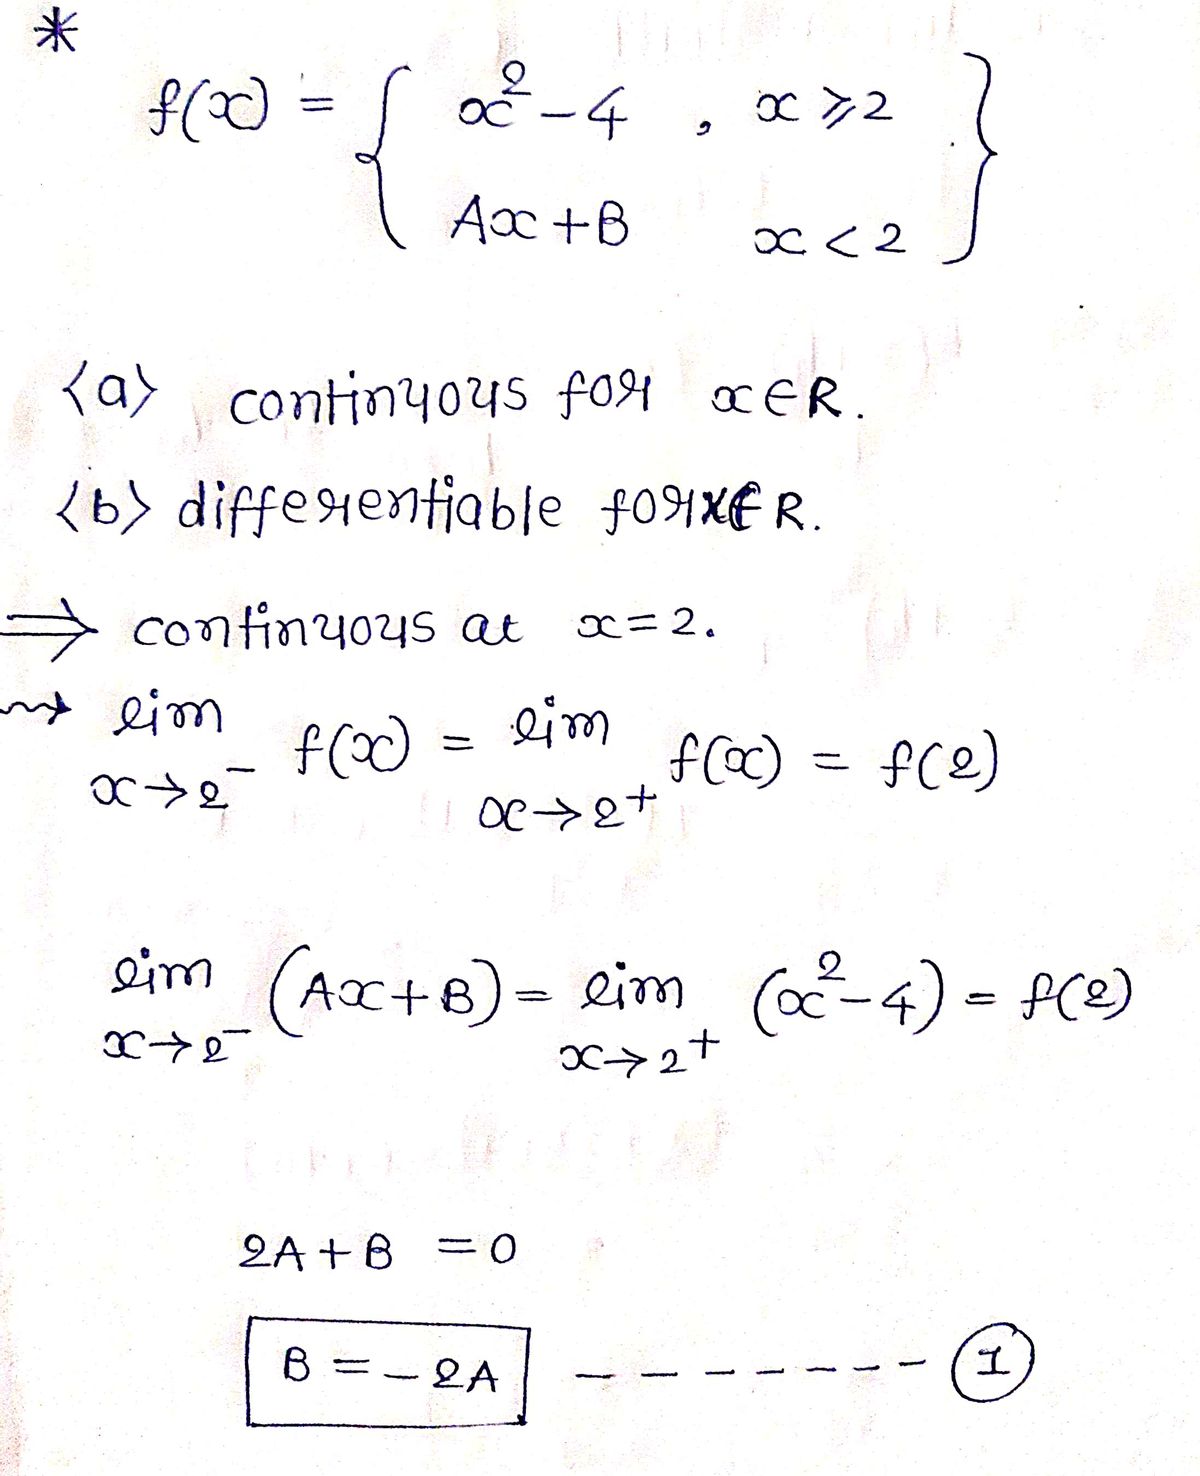 *
f(x) = { x² - 4 , x ⩾ 2
Ax + B x < 2 }
<a> continuous for x∈R.
<b> differentiable for x∈R.
⇒ continuous at x = 2.
⇝ lim x→2⁻ f(x) = lim x→2⁺ f(x) = f(2)
lim x→2⁻ (Ax + B) = lim x→2⁺ (x² - 4) = f(2)
2A + B = 0
B = - 2A - - - - - - - ①